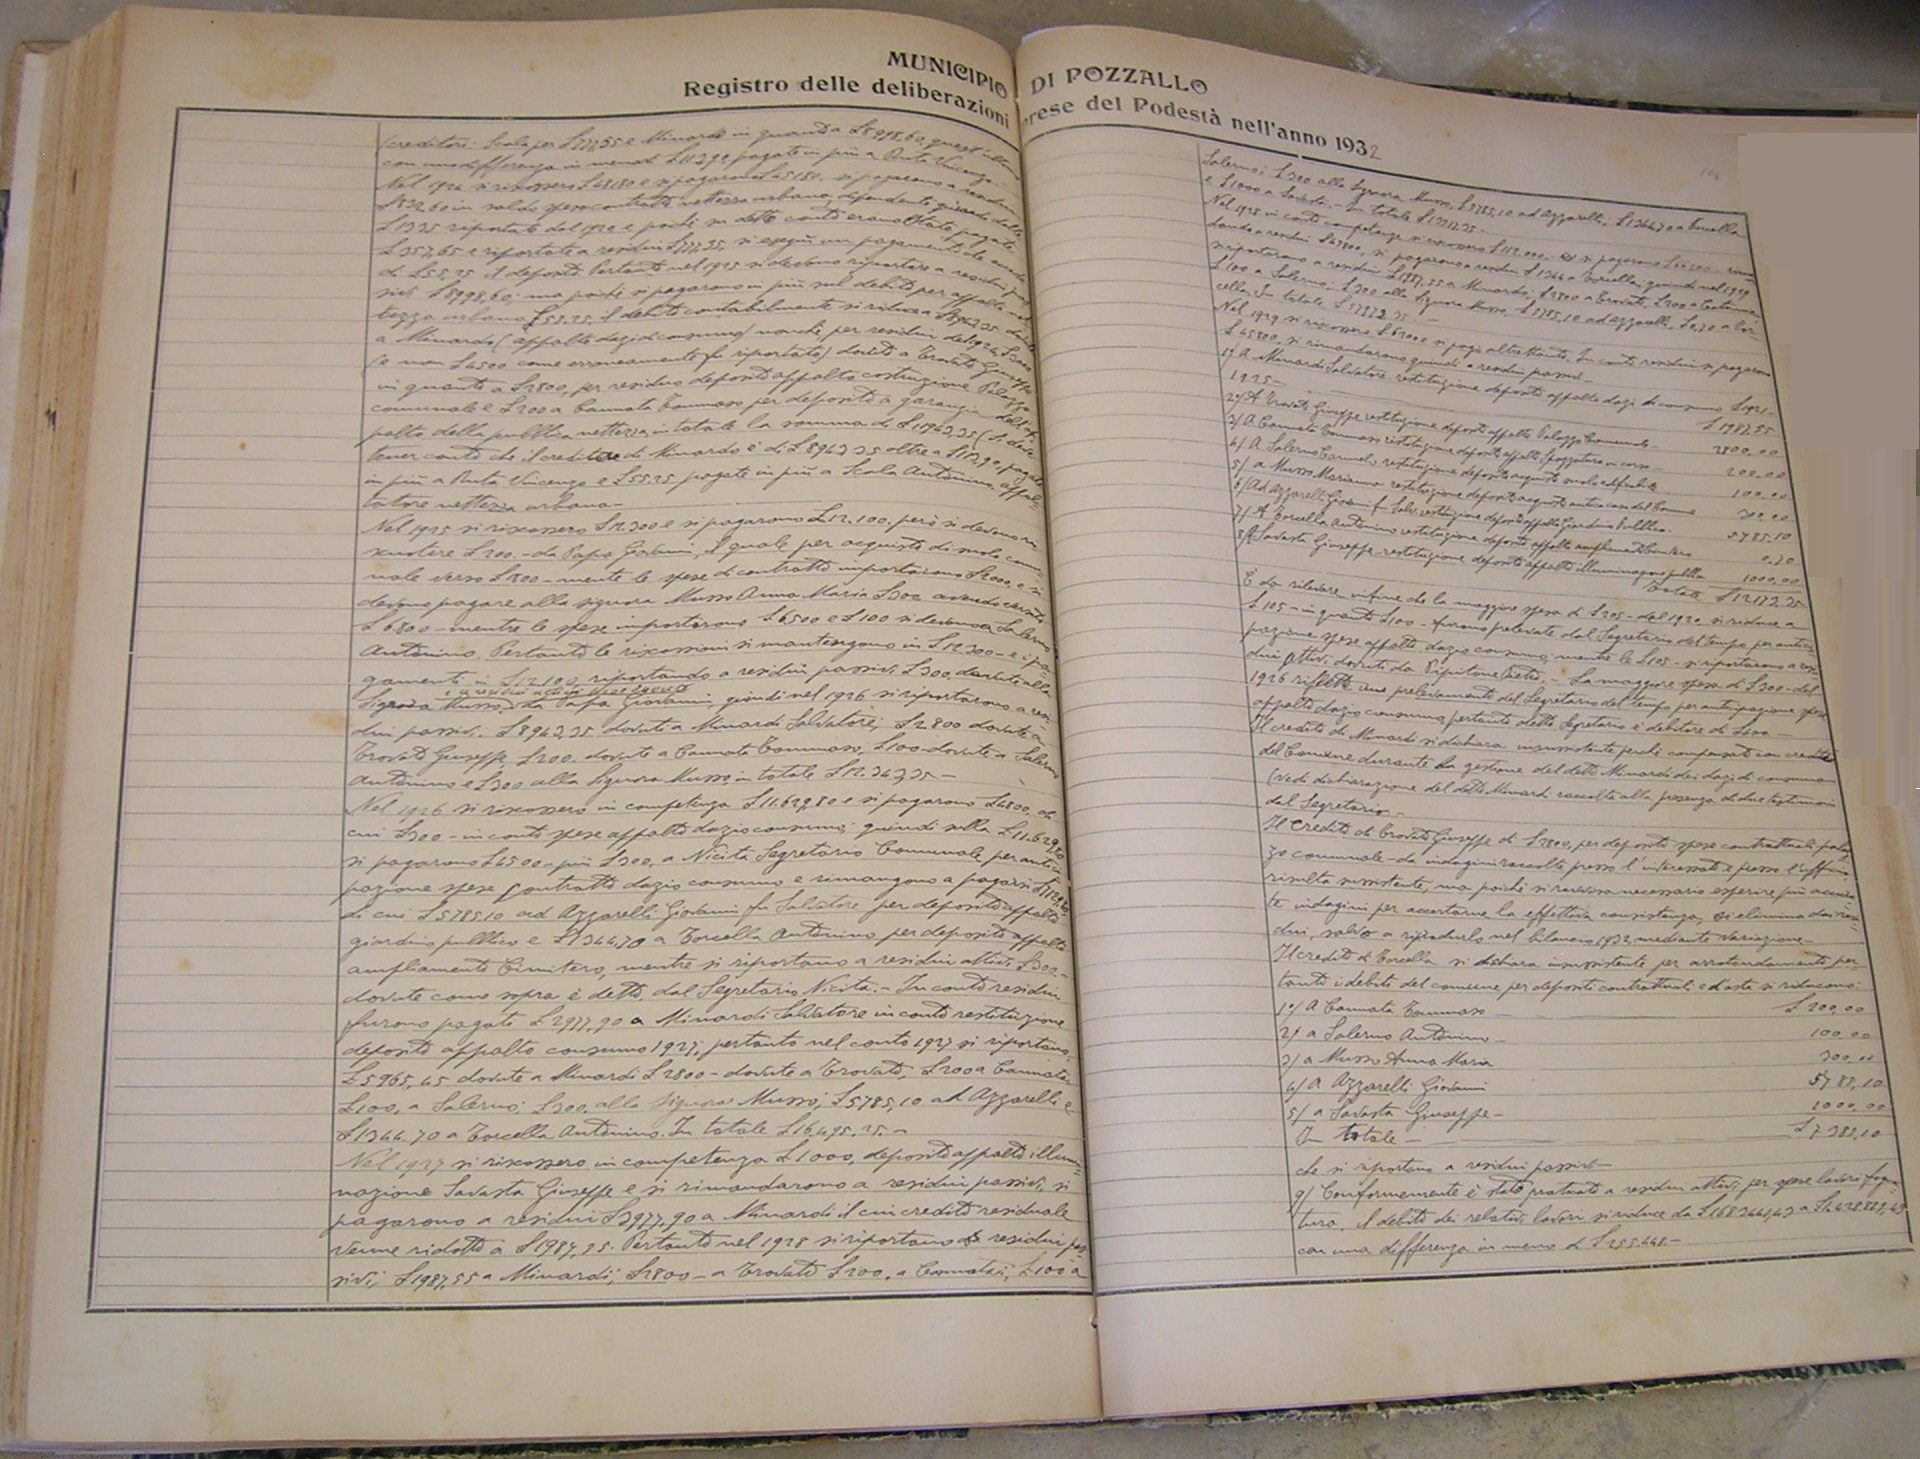 MUNICIPIO DI POZZALLO
Registro delle deliberazioni prese del Podestà nell'anno 1932
(creditori: Scala per £777,55 e Minardi in quanto a £8998,60, quest'ultimo
con una differenza in meno di pagate in più a Ruta Vincenzo.
Nel 1924 si riscossero e si pagarono si pagarono a residui
in saldo spese contratto nettezza urbana, dipendente quindi dalle
£1325 riportate dal 1922 e poiché su dette conto erano state pagate
£357,65 e riportate a residui si eseguì un pagamento
di £55,25 il deposito. Pertanto nel 1925 si devono riportare a residui pas
sivi £8998,60; ma poiché si pagarono in più sul debito per appalto net
tezza urbana £55,25, il debito contabilmente si riduce a £8943,35 dovute
a Minardi (appalto dazi di consumo) nonché per residui del 1924 £3000
(e non £4500 come erroneamente fu riportato) dovute a Trovato Giuseppe
in quanto a £2800, per residuo deposito appalto costruzione Palazzo
comunale e £200 a Cannata Tommaso per deposito a garanzia dell'ap
palto della pubblica nettezza, in totale la somma di £11943,35 (si deve
tener conto che il credito di Minardo è di £8943,35 oltre a pagate
in più a Ruta Vincenzo e £55,25 pagate in più a Scala Antonino, appal
tatore nettezza urbana—
Nel 1925 si riscossero £12.300 e si pagarono £12.100. però si devono ri
scuotere £200.- da Papa Giovanni, il quale per acquisto di suolo comu
nale verso £800— mentre le spese di contratto importarono £1000, e si
devono pagare alla signora Musso Anna Maria £300 avendo versato
£6800— mentre le spese importarono £6500 e £100 si devono a Salerno
Antonino. Pertanto le riscossioni si mantengono in £12.300— e i pa
gamenti in £12.100, riportando a residui passivi £300, dovute alla
Signora Musso, da Papa Giovanni, quindi nel 1926 si riportarono a resi
dui passivi. £8943,35 dovuti a Minardi Salvatore; £2800 dovute a
Trovato Giuseppe, £200. dovute a Cannata Tommaso, £100- dovute a Salerno
Antonino e £300 alla Signora Musso, in totale £12.343,35—
Nel 1926 si riscossero in competenza £11.629,80 e si pagarono £4800, di
cui £300- in conto spese appalto dazio consumo; quindi sulla £11.629,80
si pagarono £4500- più £300, a Nicita Segretario Comunale per antici
pazione spese contratto dazio consumo e rimangono a pagarsi
di cui £5785,10 ad Azzarelli Giovanni fu Salvatore per deposito appalto
giardino pubblico e £1344,70 a Torcella Antonino per deposito appalto
ampliamento Cimitero, mentre si riportano a residui attivi £300-
dovute come sopra è detto, dal Segretario Nicita.- In conto residui
furono pagati £2977,90 a Minardi Salvatore in conto restituzione
deposito appalto consumo 1927; pertanto nel conto 1927 si riportano
£5965,45 dovute a Minardi £2800- dovute a Trovato, £200 a Cannata,
£100, a Salerno; £300, alla Signora Musso; £5785,10 ad Azzarelli e
£1344.70 a Torcella Antonino. In totale £16.495,25.-
Nel 1927 si riscossero in competenza £1000, deposito appalto illumi
nazione Savasta Giuseppe e si rimandarono a residui passivi, si
pagarono a residui £3977,90 a Minardi il cui credito residuale
venne ridotto a £1987,55. Pertanto nel 1928 si riportano a residui pas
sivi; £1987,55 a Minardi; £2800— a Trovato £200, a Cannata; £100 a
Salerno; £300 alla Signora Musso; £5785,10 ad Azzarelli; £1344,70 a Torcella
e £1000 a Savasta.- In totale
Nel 1928 in conto competenza si riscossero £112.000.- e si pagarono riman
dando a residui si pagarono a residui £1344 a Torcella; quindi nel 1929
si riportarono a residui £1987,55 a Minardo; £2800 a Trovato, £200 a Cannata,
£100 a Salerno; £300 alla Signora Musso, £5785,10 ad Azzarelli, £0,70 a Tor
cella. In totale
Nel 1929 si riscossero e si pagò altrettanto. In conto residui si pagarono
£45800. si rimandarono quindi a residui passivi—
1) A Minardi Salvatore restituzione deposito appalto dazi di consumo £1921-
1925— £1987,55
2) A Trovato Giuseppe restituzione deposito appalto Palazzo Comunale— 2800,00
3) A Cannata Tommaso restituzione deposito appalto Spazzatura in corso— 200,00
4) A Salerno Carmelo restituzione deposito acquisto suolo edificabile 100,00
5) a Musso Marianna restituzione deposito acquisto antica casa del Comune 300,00
6) Ad Azzarelli Giovanni fu Salv. restituzione deposito appalto Giardino Pubblico. 5785,10
7) A Torcella Antonino restituzione deposito appalto ampliamento Cimitero 0,70
8) A Savasta Giuseppe restituzione deposito appalto illuminazione pubblica 1000,00
Totale £12173,35
È da rilevare infine che la maggiore spesa di £205- del 1920 si riduce a
£105- in quanto £100— furono prelevate dal Segretario del tempo per antici
pazione spese appalto dazio consumo, mentre le £105- si riportarono a resi
dui attivi dovute da Pipitone Pietro.— La maggiore spesa di £300- del
1926 riflette un prelevamento del Segretario del tempo per anticipazione spese
appalto dazio consumo, pertanto detto Segretario è debitore di £400—
Il credito di Minardi si dichiara insussistente perché compensato con credito
del Comune durante la gestione del detto Minardi dei dazi di consumo
(vedi dichiarazione del detto Minardi raccolta alla presenza di due testimoni
dal Segretario.—
Il credito di Trovato Giuseppe di £2800, per deposito spese contrattuali palaz
zo comunale— da indagini raccolte presso l'interessato e presso l'ufficio
risulta sussistente, ma poiché si ravvisa necessario esperire più accura
te indagini per accertarne la effettiva consistenza, si elimina dai resi
dui, salvo a riprodurlo nel bilancio 1932 mediante variazione—
Il credito di Torcella si dichiara insussistente per arrotondamento per
tanto i debiti del comune per depositi contrattuali e d'asta si riducono:
1°) A Cannata Tommaso— £200,00
2) a Salerno Antonino— 100,00
3) a Musso Anna Maria 300,00
4) A Azzarelli Giovanni 5785,10
5) a Savasta Giuseppe— 1000,00
In totale— £7385,10
che si riportano a residui passivi—
g) Conformemente è stato praticato a residui attivi, per spese lavori fogna
tura, il debito dei relativi lavori si riduce da £1683441,43 a
con una differenza in meno di £255.448.—